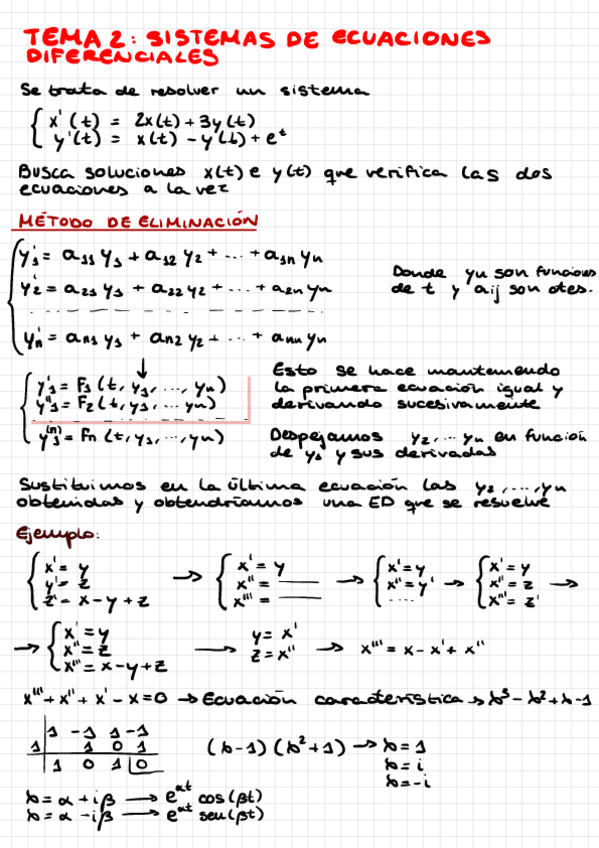 TEMA 2: SISTEMAS DE ECUACIONES
DIFERENCIALES
Se trata de resolver un sistema
{ x'(t) = 2x(t) + 3y(t)
y'(t) = x(t) - y(t) + e^t
Busca soluciones x(t) e y(t) que verifica las dos
ecuaciones a la vez
MÉTODO DE ELIMINACIÓN
{ y₁' = a₁₁ y₁ + a₁₂ y₂ + ... + a₁ₙ yₙ
y₂' = a₂₁ y₁ + a₂₂ y₂ + ... + a₂ₙ yₙ
yₙ' = aₙ₁ y₁ + aₙ₂ y₂ + ... + aₙₙ yₙ
Donde yn son funciones
de t y aij son ctes.
↓
{ y₁' = F₁ (t, y₁, ..., yₙ)
y₁'' = F₂ (t, y₁, ..., yₙ)
y₁⁽ⁿ⁾ = Fn (t, y₁, ..., yₙ)
Esto se hace manteniendo
la primera ecuación igual y
derivando sucesivamente
Despejamos y₂, ... yn en función
de y₁ y sus derivadas
Sustituimos en la última ecuación las y₂, ..., yn
obtenidas y obtendríamos una ED que se resuelve
Ejemplo:
{ x' = y
y' = z
z' = x - y + z
→ { x' = y
x'' = ___
x''' = ___
→ { x' = y
x'' = y'
....
→ { x' = y
x'' = z
x''' = z' →
→ { x' = y
x'' = z
x''' = x - y + z
→ y = x'
z = x''
→ x''' = x - x' + x''
x''' + x'' + x' - x = 0 → Ecuación característica → λ³ - λ² + λ - 1
1 -1 1 -1
1 | 1 0 1
1 0 1 |0
(λ-1)(λ²+1) → λ = 1
λ = i
λ = -i
λ = α + iβ → e^αt cos(βt)
λ = α - iβ → e^αt sen(βt)